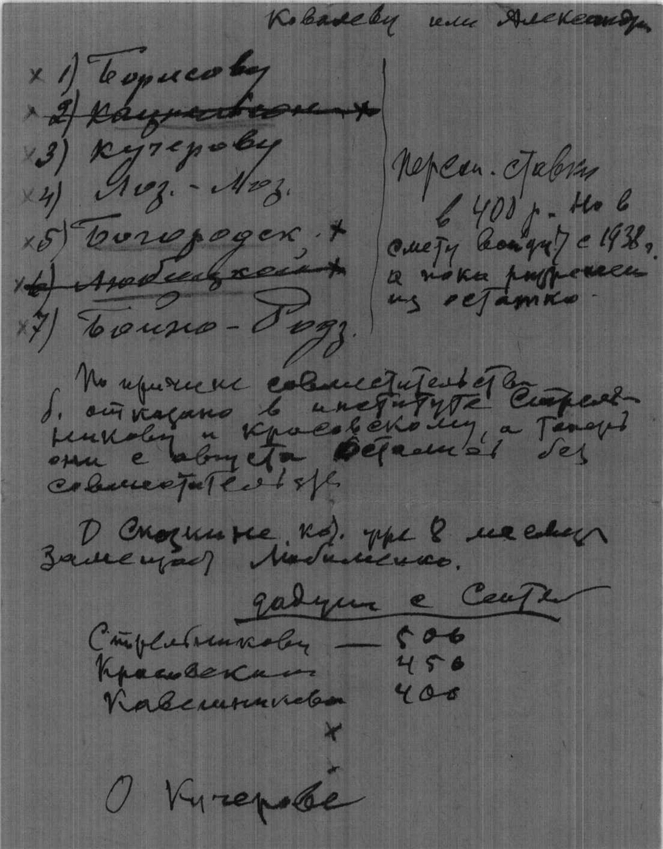 Ковалеву или Александр
1) Борисову
2) Кацнельсон
3) Кучерову
4) Лоз.-Лоз.
5) Богородск.
6) Любицкой
7) Бойно-Родз.
Персон. ставки
в 400 р. Но в
смету войдут с 1938 г.
а пока разрешен
из остатко
По причине совместительства
б. отказано в институте Стрель-
никову и Красовскому, а теперь
они с августа остались без
совместительства
О Сказкине, кот. уже 8 месяцев
замещает Любименко.
дадим с Сент
Стрельникову — 500
Красовский 450
Кавешникова 400
О Кучерове